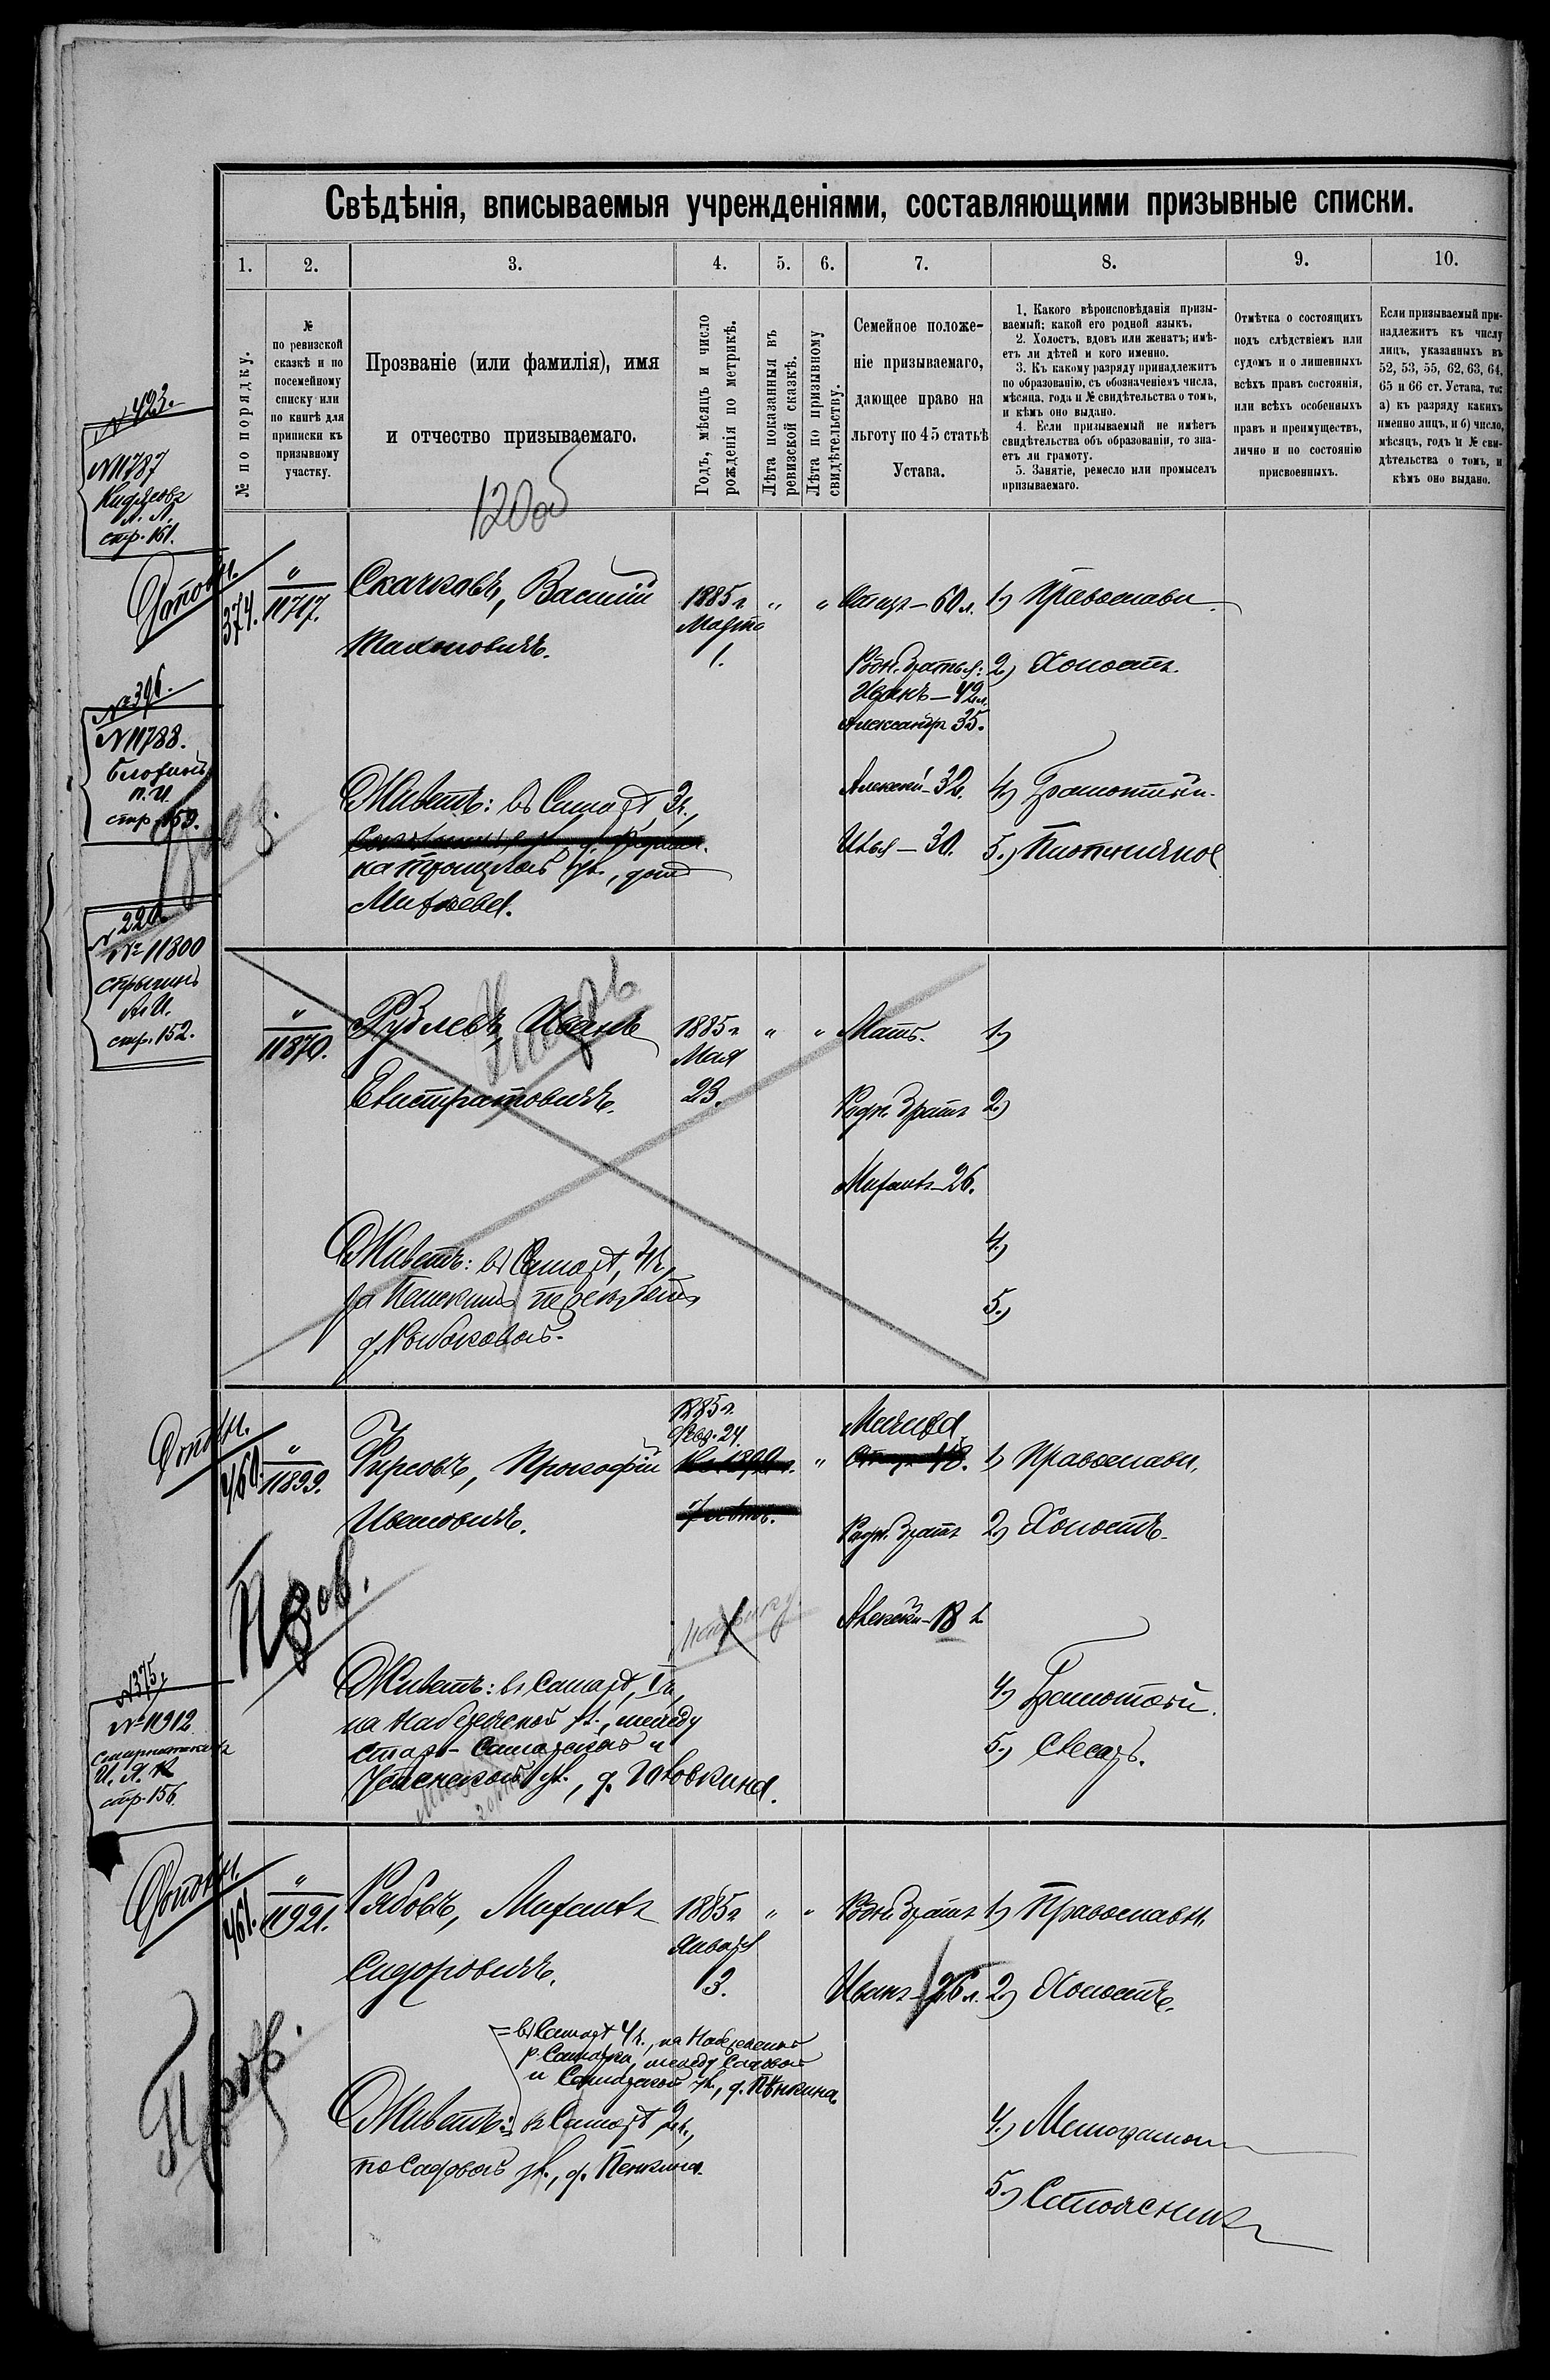 Свѣдѣнія, вписываемыя учрежденіями, составляющими призывные списки.
1. 2. 3. 4. 5. 6. 7. 8. 9. 10.
№ по порядку.
№
по ревизской
сказкѣ и по
посемейному
списку или
по книгѣ для
приписки къ
призывному
участку.
Прозваніе (или фамилія), имя
и отчество призываемаго.
Годъ, мѣсяцъ и число
рожденія по метрикѣ.
Лѣта показанныя въ
ревизской сказкѣ.
Лѣта по призывному
свидѣтельству.
Семейное положе-
ніе призываемаго,
дающее право на
льготу по 45 статьѣ
Устава.
1. Какого вѣроисповѣданія призы-
ваемый; какой его родной языкъ.
2. Холостъ, вдовъ или женатъ; имѣ-
етъ ли дѣтей и кого именно.
3. Къ какому разряду принадлежитъ
по образованію, съ обозначеніемъ числа,
мѣсяца, года и № свидѣтельства о томъ,
и кѣмъ оно выдано.
4. Если призываемый не имѣетъ
свидѣтельства объ образованіи, то зна-
етъ ли грамоту.
5. Занятіе, ремесло или промыселъ
призываемаго.
Отмѣтка о состоящихъ
подъ слѣдствіемъ или
судомъ и о лишенныхъ
всѣхъ правъ состоянія,
или всѣхъ особенныхъ
правъ и преимуществъ,
лично и по состоянію
присвоенныхъ.
Если призываемый при-
надлежитъ къ числу
лицъ, указанныхъ въ
52, 53, 55, 62, 63, 64,
65 и 66 ст. Устава, то:
а) къ разряду какихъ
именно лицъ, и б) число,
мѣсяцъ, годъ и № сви-
дѣтельства о томъ, и
кѣмъ оно выдано.
120об
N 423.
N 11787
стр. 161.
№ 396.
N 11788.
П. И.
стр. 159.
N 220
№ 11800
Стрыгинъ
А. И.
стр. 152.
374.
"
11717.
Скачковъ, Василій
1885 г.
Марта
1.
" "
Отецъ – 60 л.
Родн. братья:
Иванъ – 42 л.
Александръ 35.
Алексѣй – 32.
Илья – 30.
1) Православн.
2) Холостъ.
4) Грамотный.
5.) Плотничное
Живетъ: въ Самарѣ, 3ч.,
на Троицкой ул., домъ
11870.
Рублевъ, Иванъ
Евстратовичъ.
1885 г.
Мая
23.
" "
Мать.
Родн. братъ
Михаилъ – 26.
1)
2)
4)
5.)
Живетъ: въ Самарѣ,
д. Рыбаковой.
460.
"
11899.
Фирсовъ, Прокофій
Ивановичъ.
1885 г.
Фев. 24.
"
Мачиха
Родн. братъ
Алексѣй – 18 л
1) Православн.
2) Холостъ.
4) Грамотный.
5.) Слесарь.
Живетъ: въ Самарѣ, 1ч,
на Набережной ул., между
Старо-Самарской и
Успенской ул., д. Иовкина.
N 375.
№ 11912
стр. 156.
461.
"
11921.
Рябовъ, Михаилъ
Сидоровичъ.
1885 г
Января
3.
" "
Родн. братъ
Иванъ – 26 л.
1) Православн.
2) Холостъ.
4.) Малограмотн
5.)
= въ Самарѣ 4ч., на Набережной
р. Самарки, между Садовой
и Самарской ул., д. Пѣнкина
Живетъ: = въ Самарѣ 2ч.,
по Садовой ул., д. Пенкина.